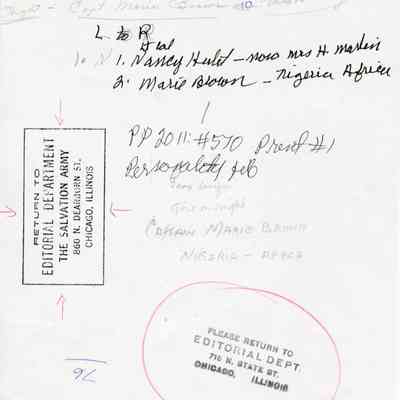 Capt Marie Brown
10
L to R
1. Nancy Hulet - now mrs H. Martin
2. Marie Brown - Nigeria Africa
PP 2011: #570 Print #1
Personality
RETURN TO
EDITORIAL DEPARTMENT
THE SALVATION ARMY
860 N. DEARBORN ST.
CHICAGO, ILLINOIS
Captain Marie Brown
NIGERIA - AFRICA
PLEASE RETURN TO
EDITORIAL DEPT.
719 N. STATE ST.
CHICAGO, ILLINOIS
76